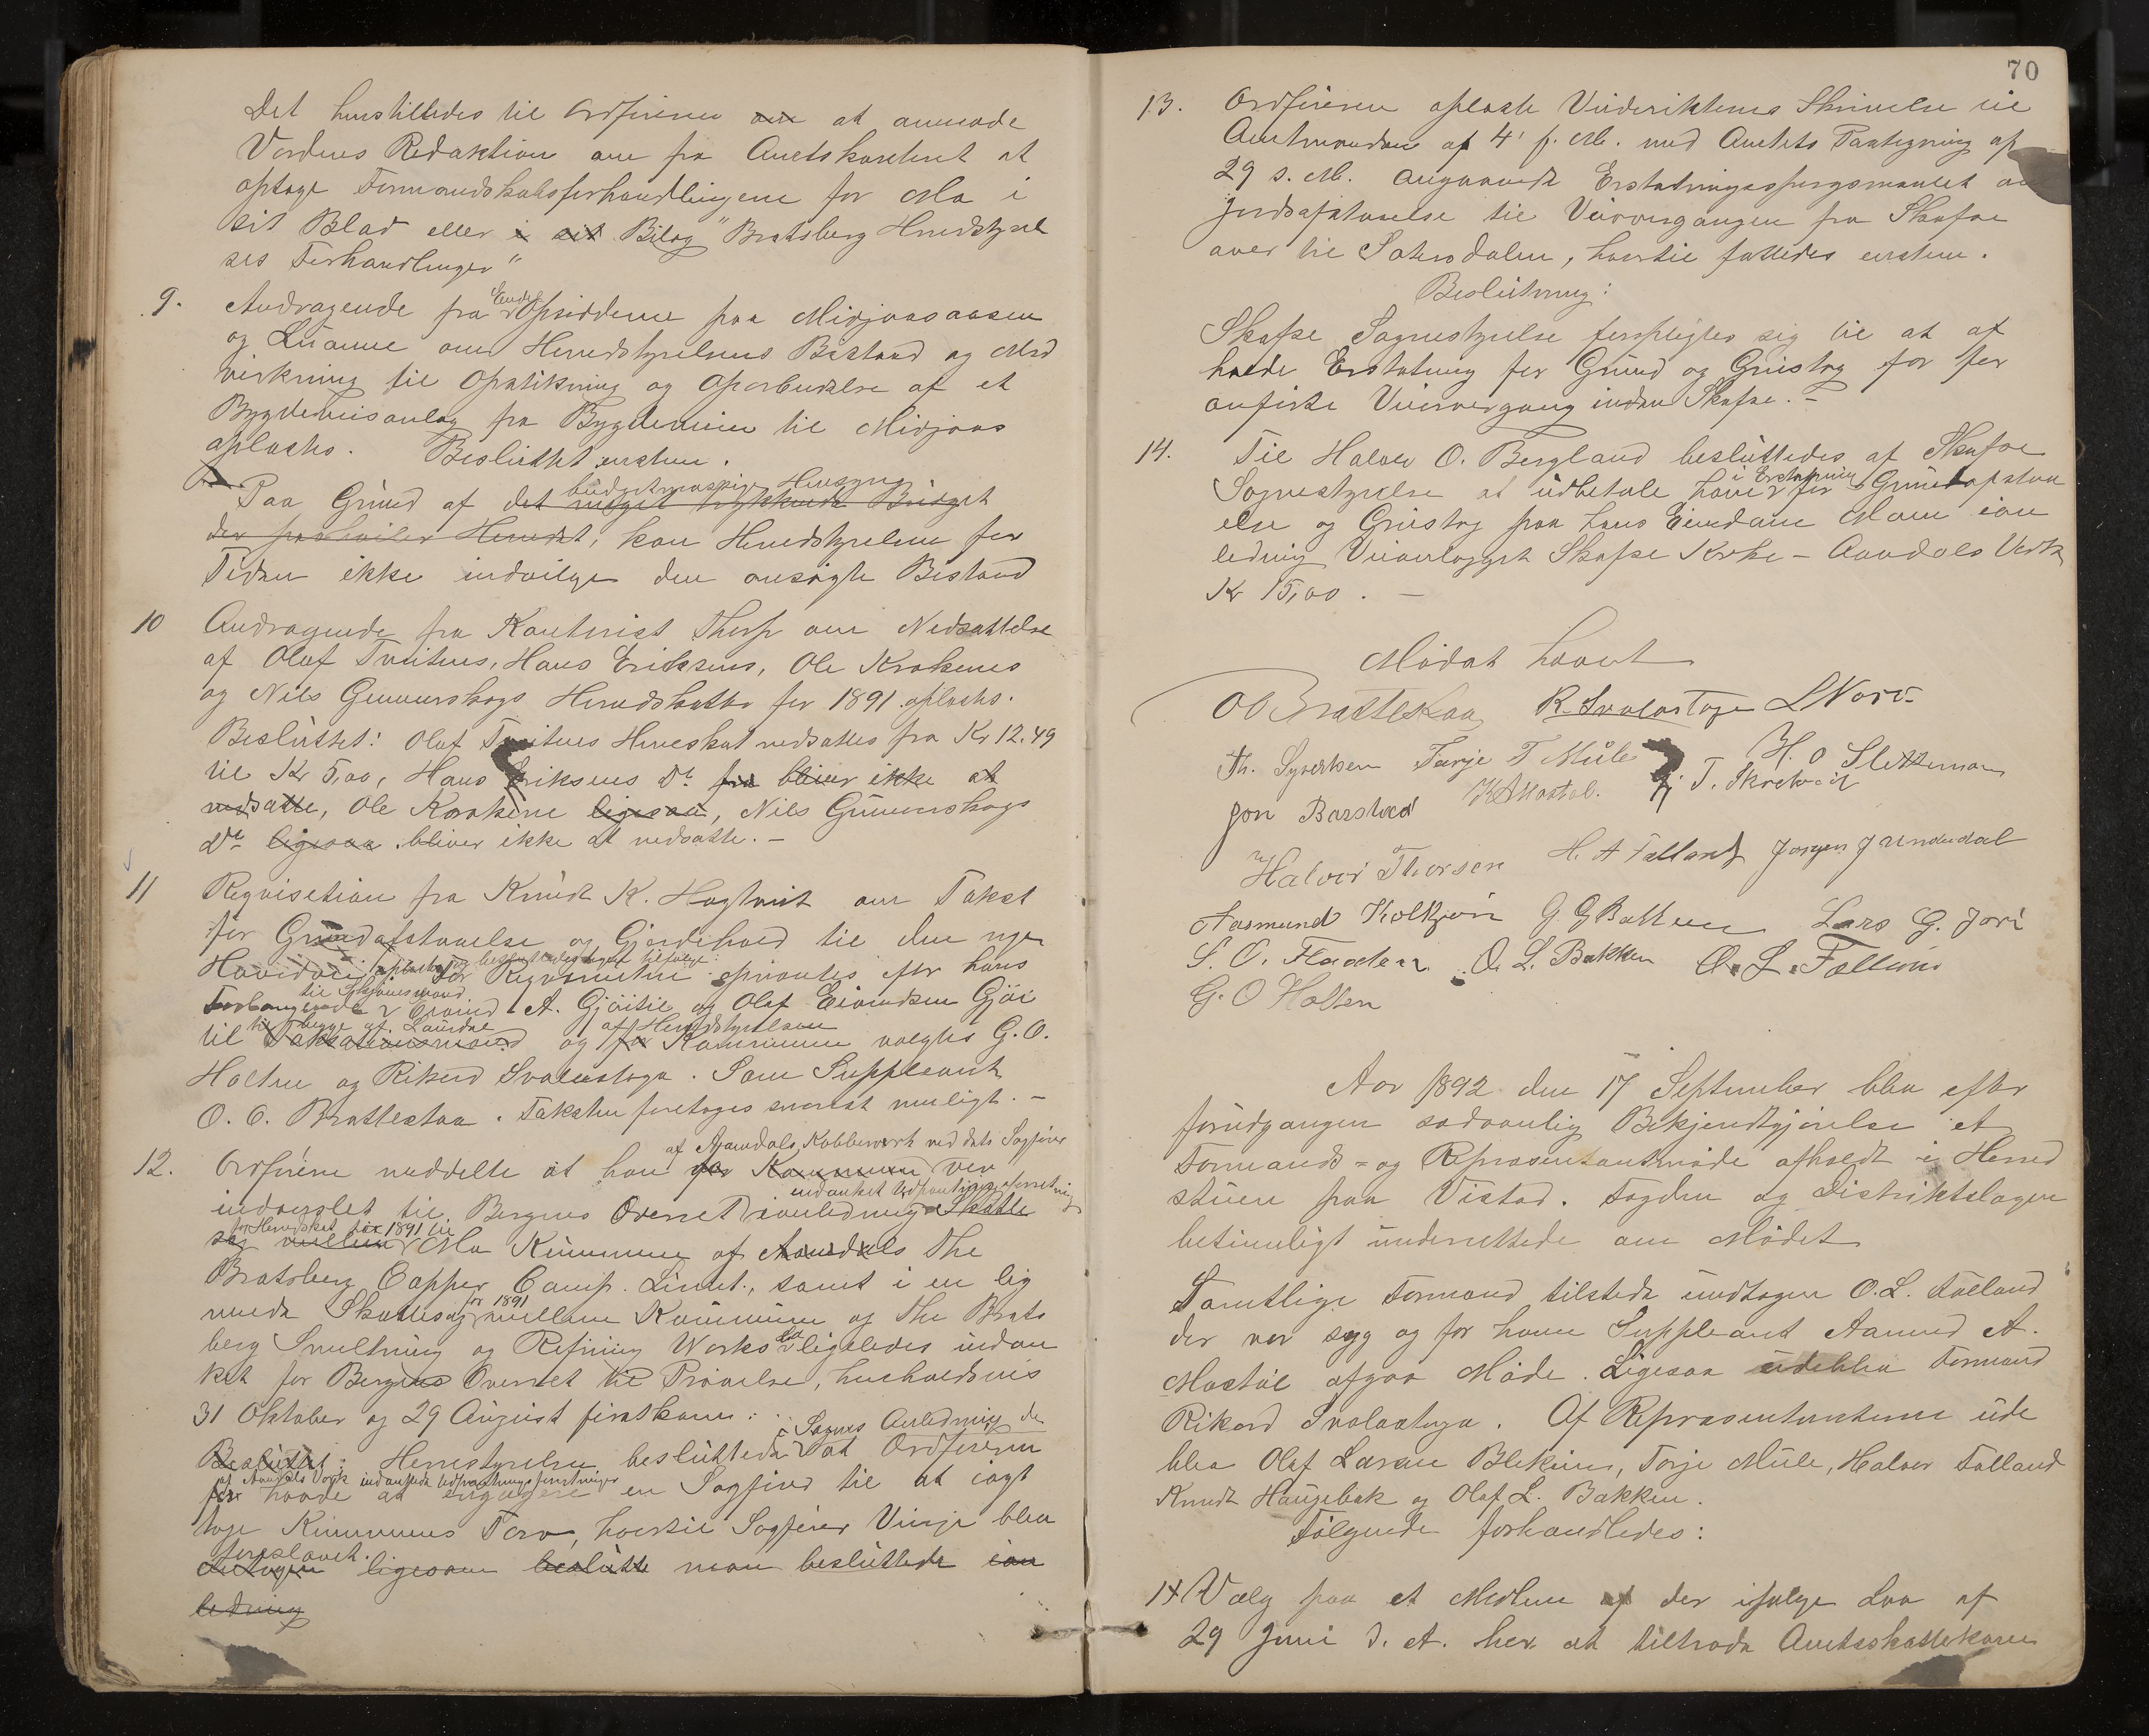 Det henstilledes til Ordføreren om at anmode
Vardens Redaktion om fra Amtskontoret at
optage Formandskabsforhandlingerne for Mo i
sit Blad eller i sit Bilag "Bratsberg Herredstyrel
ses Forhandlinger"
9. Andragende fra Endel Opsidderne paa Midjaasaasen
og Liïanne om Herredstyrelsens Bistand og Med
virkning til Opstikning og Oparbeidelse af et
Bygdeveisanlæg fra Bygdeveien til Midjaas
oplæstes. Besluttet eenstem.
Paa Grund af det meget trykkende Budget budgetmæssige Hensyn
der paahviler Herredet, kan Herredstyrelsen for
Tiden ikke indvilge den ansøgte Bistand
10 Andragende fra Kontorist Thorp om Nedsættelse
af Olaf Tveitens, Hans Eriksens, Ole Krokenes
og Nils Gunnerskogs Herredskatte for 1891 oplæstes.
Besluttet: Olaf Tveitens Herredskat nedsattes fra Kr 12.49
til Kr 5,00, Hans Eriksens Do fra bliver ikke at
nedsatte, Ole Krokene ligesaa, Nils Gunnerskogs
Do ligesaa bliver ikke at nedsatte. -
11 Reqvisition fra Knudt K. Hagtveit om Takst
for Grundafstaaelse og Gjerdehold til den nye
Hovedvei oplæstes og besluttedes taget tilfølge: For Reqvirenten opnævntes efter hans
Forlangende til Skjønsmænd Eivind A. Gjøitil og Olaf Eivindsen Gjøi
til Taksationsmænd begge af Laurdal og for af Herredstyrelsen Kommunen valgtes G. O.
Holten og Rikard Svalastoga. Som Suppleant
O. O. Brattestaa. Taksten foretages snarest muligt. -
12. Ordføreren meddelte at han for Kommunen af Aamdals Kobberverk ved dets Sagfører var
indvarslet til Bergens Overret i anledning indanket Udpantningsforretning Skatte
sag mellem for Herredskat for 1891 til Mo Kommune af Aamdals The
Bratsberg Copper Comp. Limt., samt i en lig
nende Skattesag for 1891 mellem Kommunen og The Brats
berg Smeltning og Refining Works Ld ligeledes indan
ket for Bergens Overret til Prøvelse, henholdsvis
31 Oktober og 29 August førstkom:
Besluttet: Herredstyrelsen besluttede i Sagens Anledning de at Ordføreren
af Aamdals Værk indankede Udpantningsforretninger
for havde at engagere en Sagfører til at iagt
tage Kommunens Tarv, hvortil Sagfører Vinje blev
foreslaaet.
antagen ligesom beslutte man besluttede i an
ledning
70
13. Ordføreren oplæste Veidirektørens Skrivelse til
Amtmanden af 4' f. M. med Amtets Paategning af
29 s. M. angaaende Erstatningsspørgsmaalet om
Jordsafstaaelse til Veiovergangen fra Skafsæ
over til Sætersdalen, hvortil fattedes eenstem.
Beslutning:
Skafse Sognestyrelse forpligter sig til at af
holde Erstatning for Grund og Grustag for før
anførte Veiovergang inden Skafse. -
14. Til Halvor O. Bergland besluttedes af Skafsæ
Sognestyrelse at udbetale ham i Erstatning for Grundafstaa
else og Grustag paa hans Eiendom Moen i an
ledning Veianlægget Skafse Kirke - Aamdals Verk
Kr 15,00. -
Mødet hævet
O O Brattestaa R. Svalastoga L Nord
Th. Syvertsen Tarje T Mule H. O Slettemoen
Jon Barstad K A Mostøl. T. Skretveit
Halvor Thorsen H. A Fælland Jørgen J Undedal
Aasmund Kolkjøn G G Batten Lars G. Jore
S. O. Flaaden O. L. Bakken O. L. Fælland
G. O Holten
Aar 1892 den 17 September blev efter
forudgangen sædvanlig Bekjendtgjørelse et
Formands- og Repræsentantmøde afholdt i Herred
stuen paa Vistad. Fogden og Distriktslægen
betimeligt underrettede om Mødet
Samtlige Formænd tilstede undtagen O. L. Fælland
der var syg og for ham Suppleant Aamund A.
Mostøl afgav Møde. Ligesaa udeblev Formand
Rikard Svalastoga. Af Repræsentanterne ude
blev Olaf Larsen Blekine, Torje Mule, Halvor Fælland
Knudt Haugebak og Olaf L. Bakken.
Følgende forhandledes:
1 Valg paa et Medlem af der ifølge Lov af
29 Juni d. A. har at tiltræde Amtsskattekom